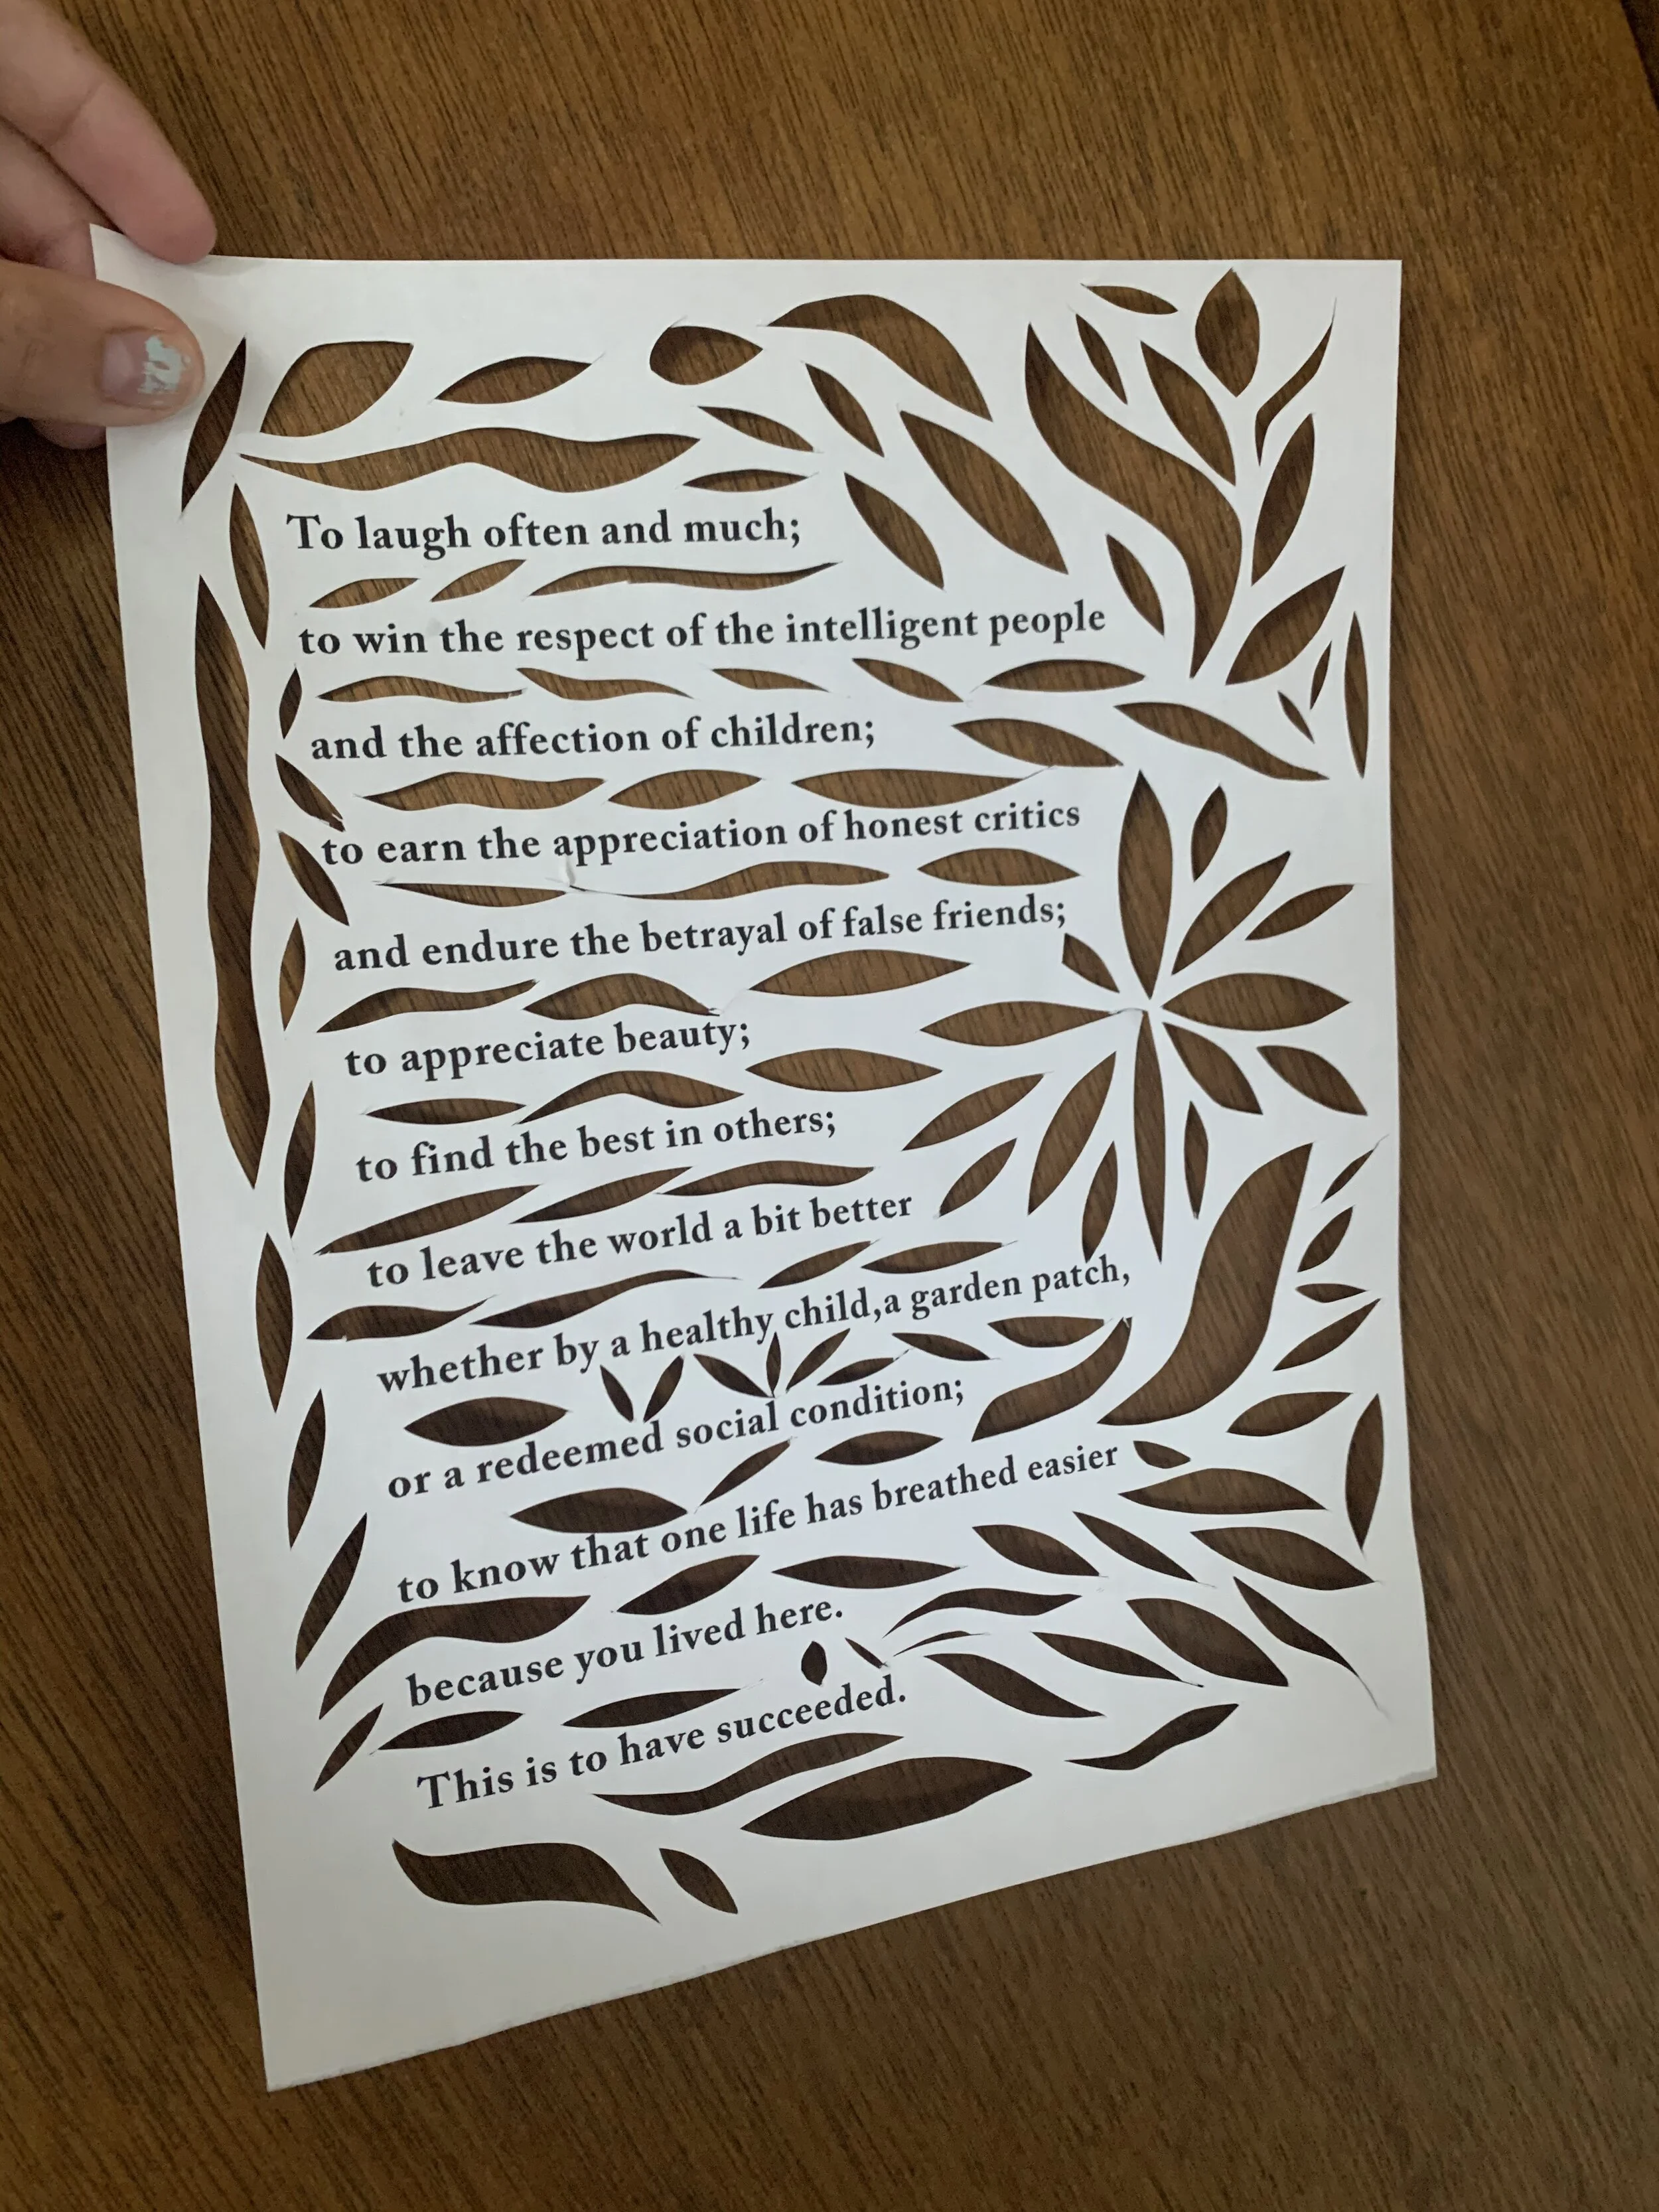 To laugh often and much;
to win the respect of the intelligent people
and the affection of children;
to earn the appreciation of honest critics
and endure the betrayal of false friends;
to appreciate beauty;
to find the best in others;
to leave the world a bit better
whether by a healthy child,a garden patch,
or a redeemed social condition;
to know that one life has breathed easier
because you lived here.
This is to have succeeded.